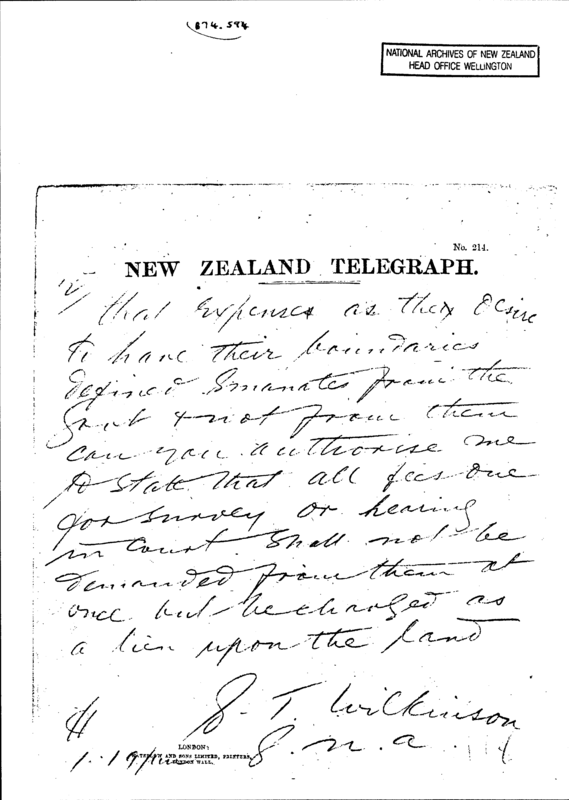 874.584
NATIONAL ARCHIVES OF NEW ZEALAND
HEAD OFFICE WELLINGTON
No. 214.
NEW ZEALAND TELEGRAPH.
2/ that expenses as the desire
to have their boundaries
defined emanates from the
Govt & not from them
can you authorise me
to state that all fees due
for survey or hearing
in Court shall not be
demanded from them at
once but be charged as
a lien upon the land
G. T. Wilkinson
G. N. A.
LONDON:
AND SONS LIMITED, PRINTERS,
LONDON WALL.